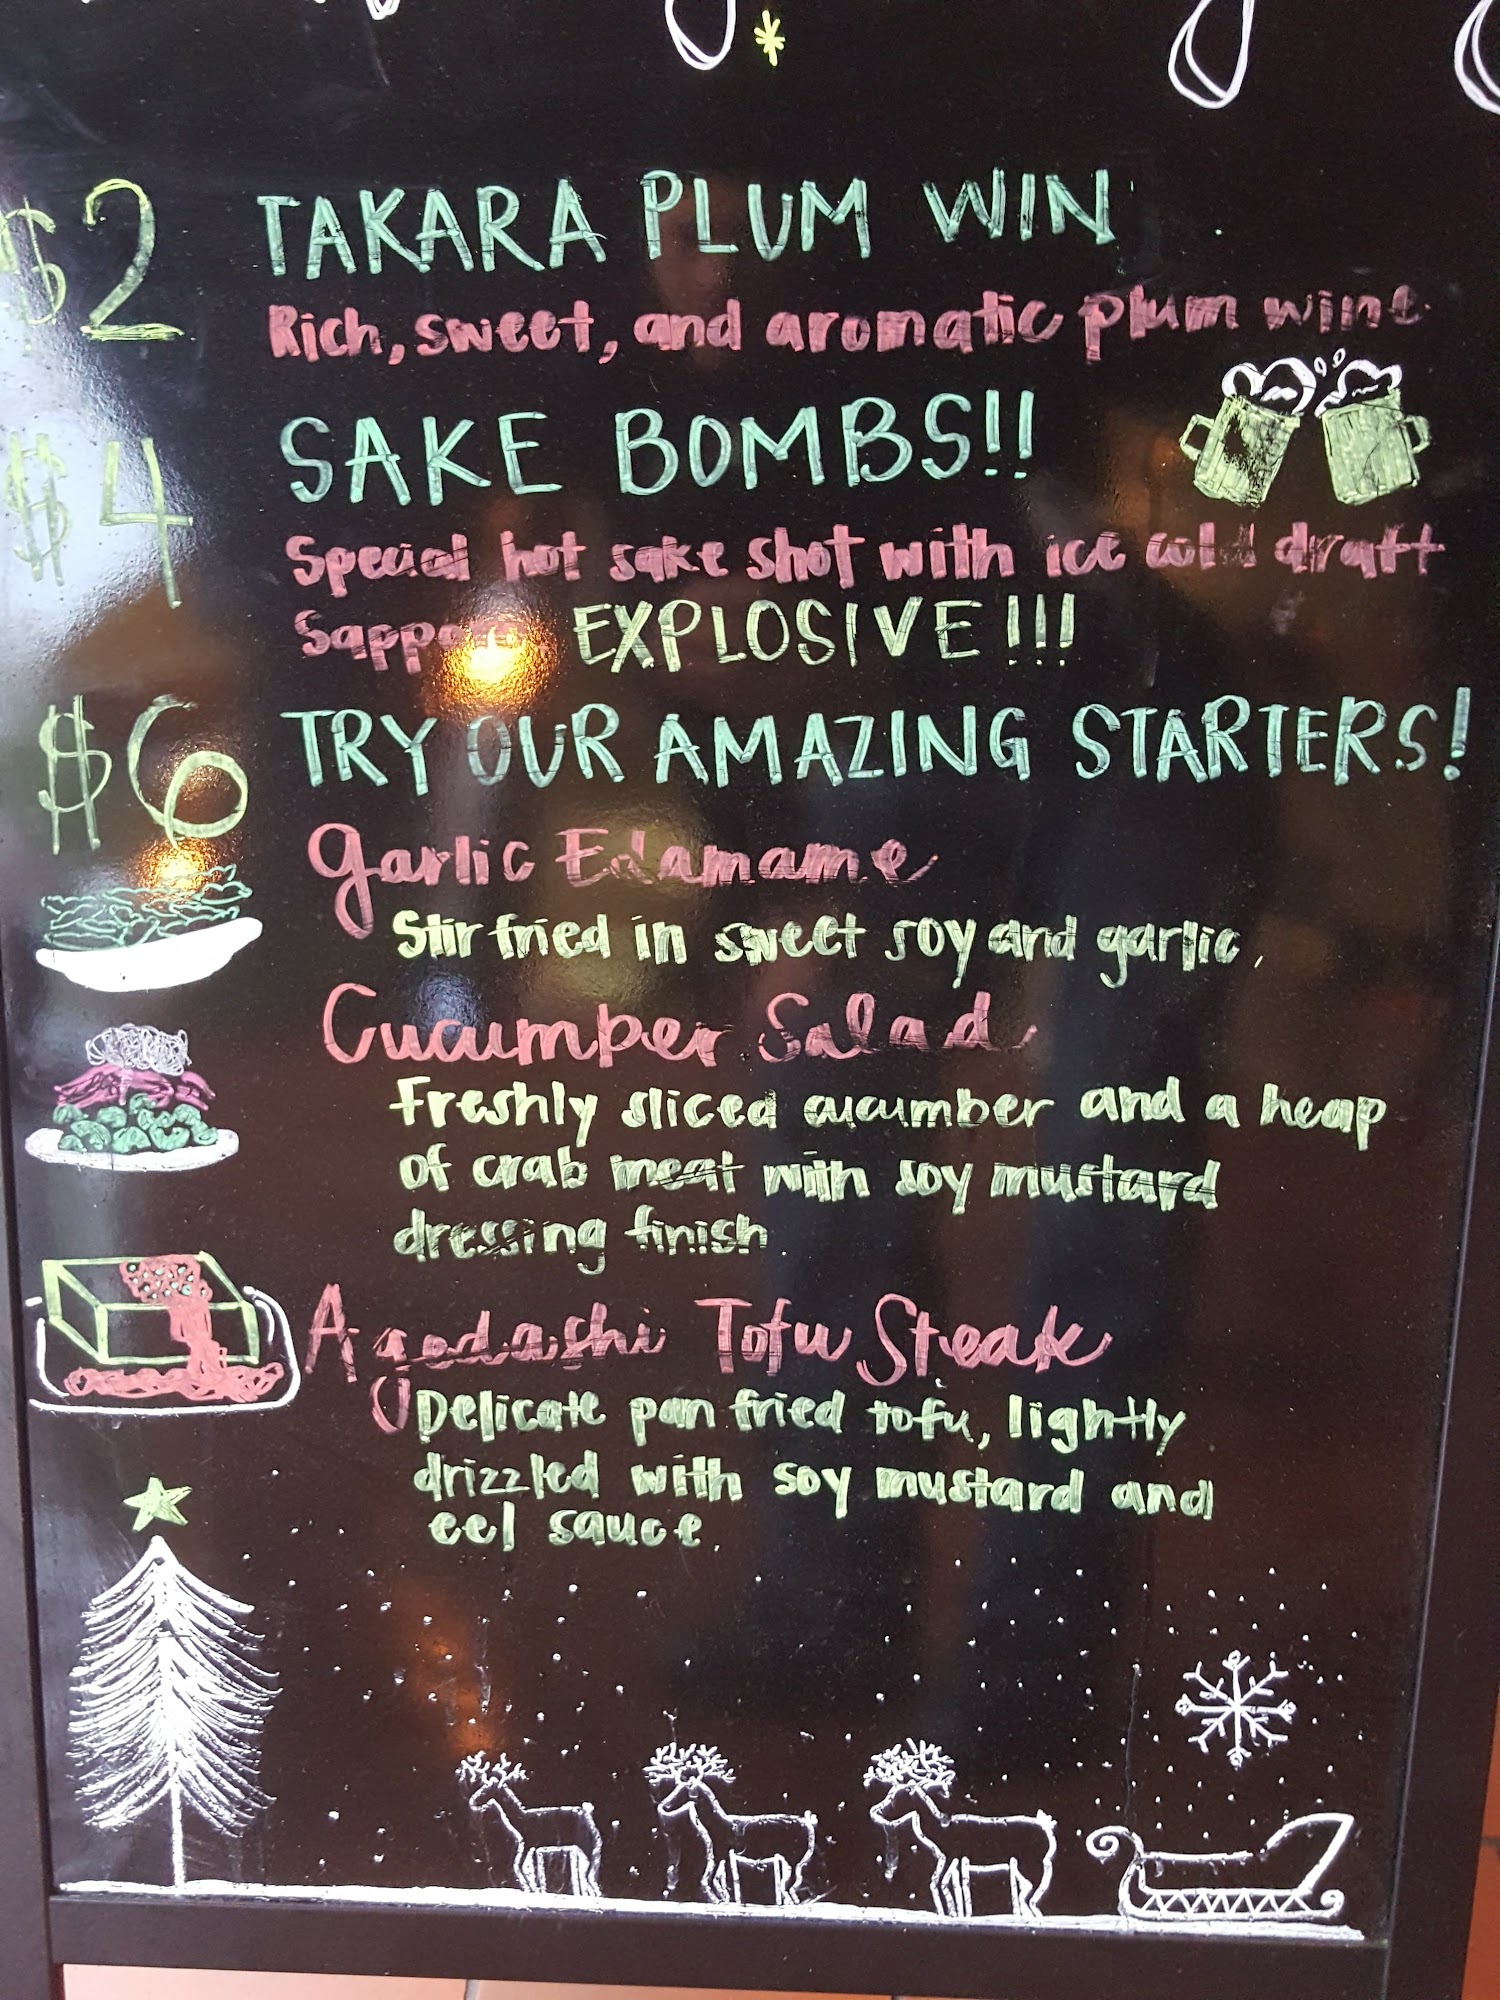 $2 TAKARA PLUM WIN
Rich, sweet, and aromatic plum wine
$4 SAKE BOMBS!!
Special hot sake shot with ice cold draft
EXPLOSIVE!!!
$6 TRY OUR AMAZING STARTERS!
Garlic Edamame
Stir fried in sweet soy and garlic.
Cucumber Salad
Freshly sliced cucumber and a heap
of crab meat with soy mustard
dressing finish.
Agedashi Tofu Steak
Delicate pan fried tofu, lightly
drizzled with soy mustard and
eel sauce.